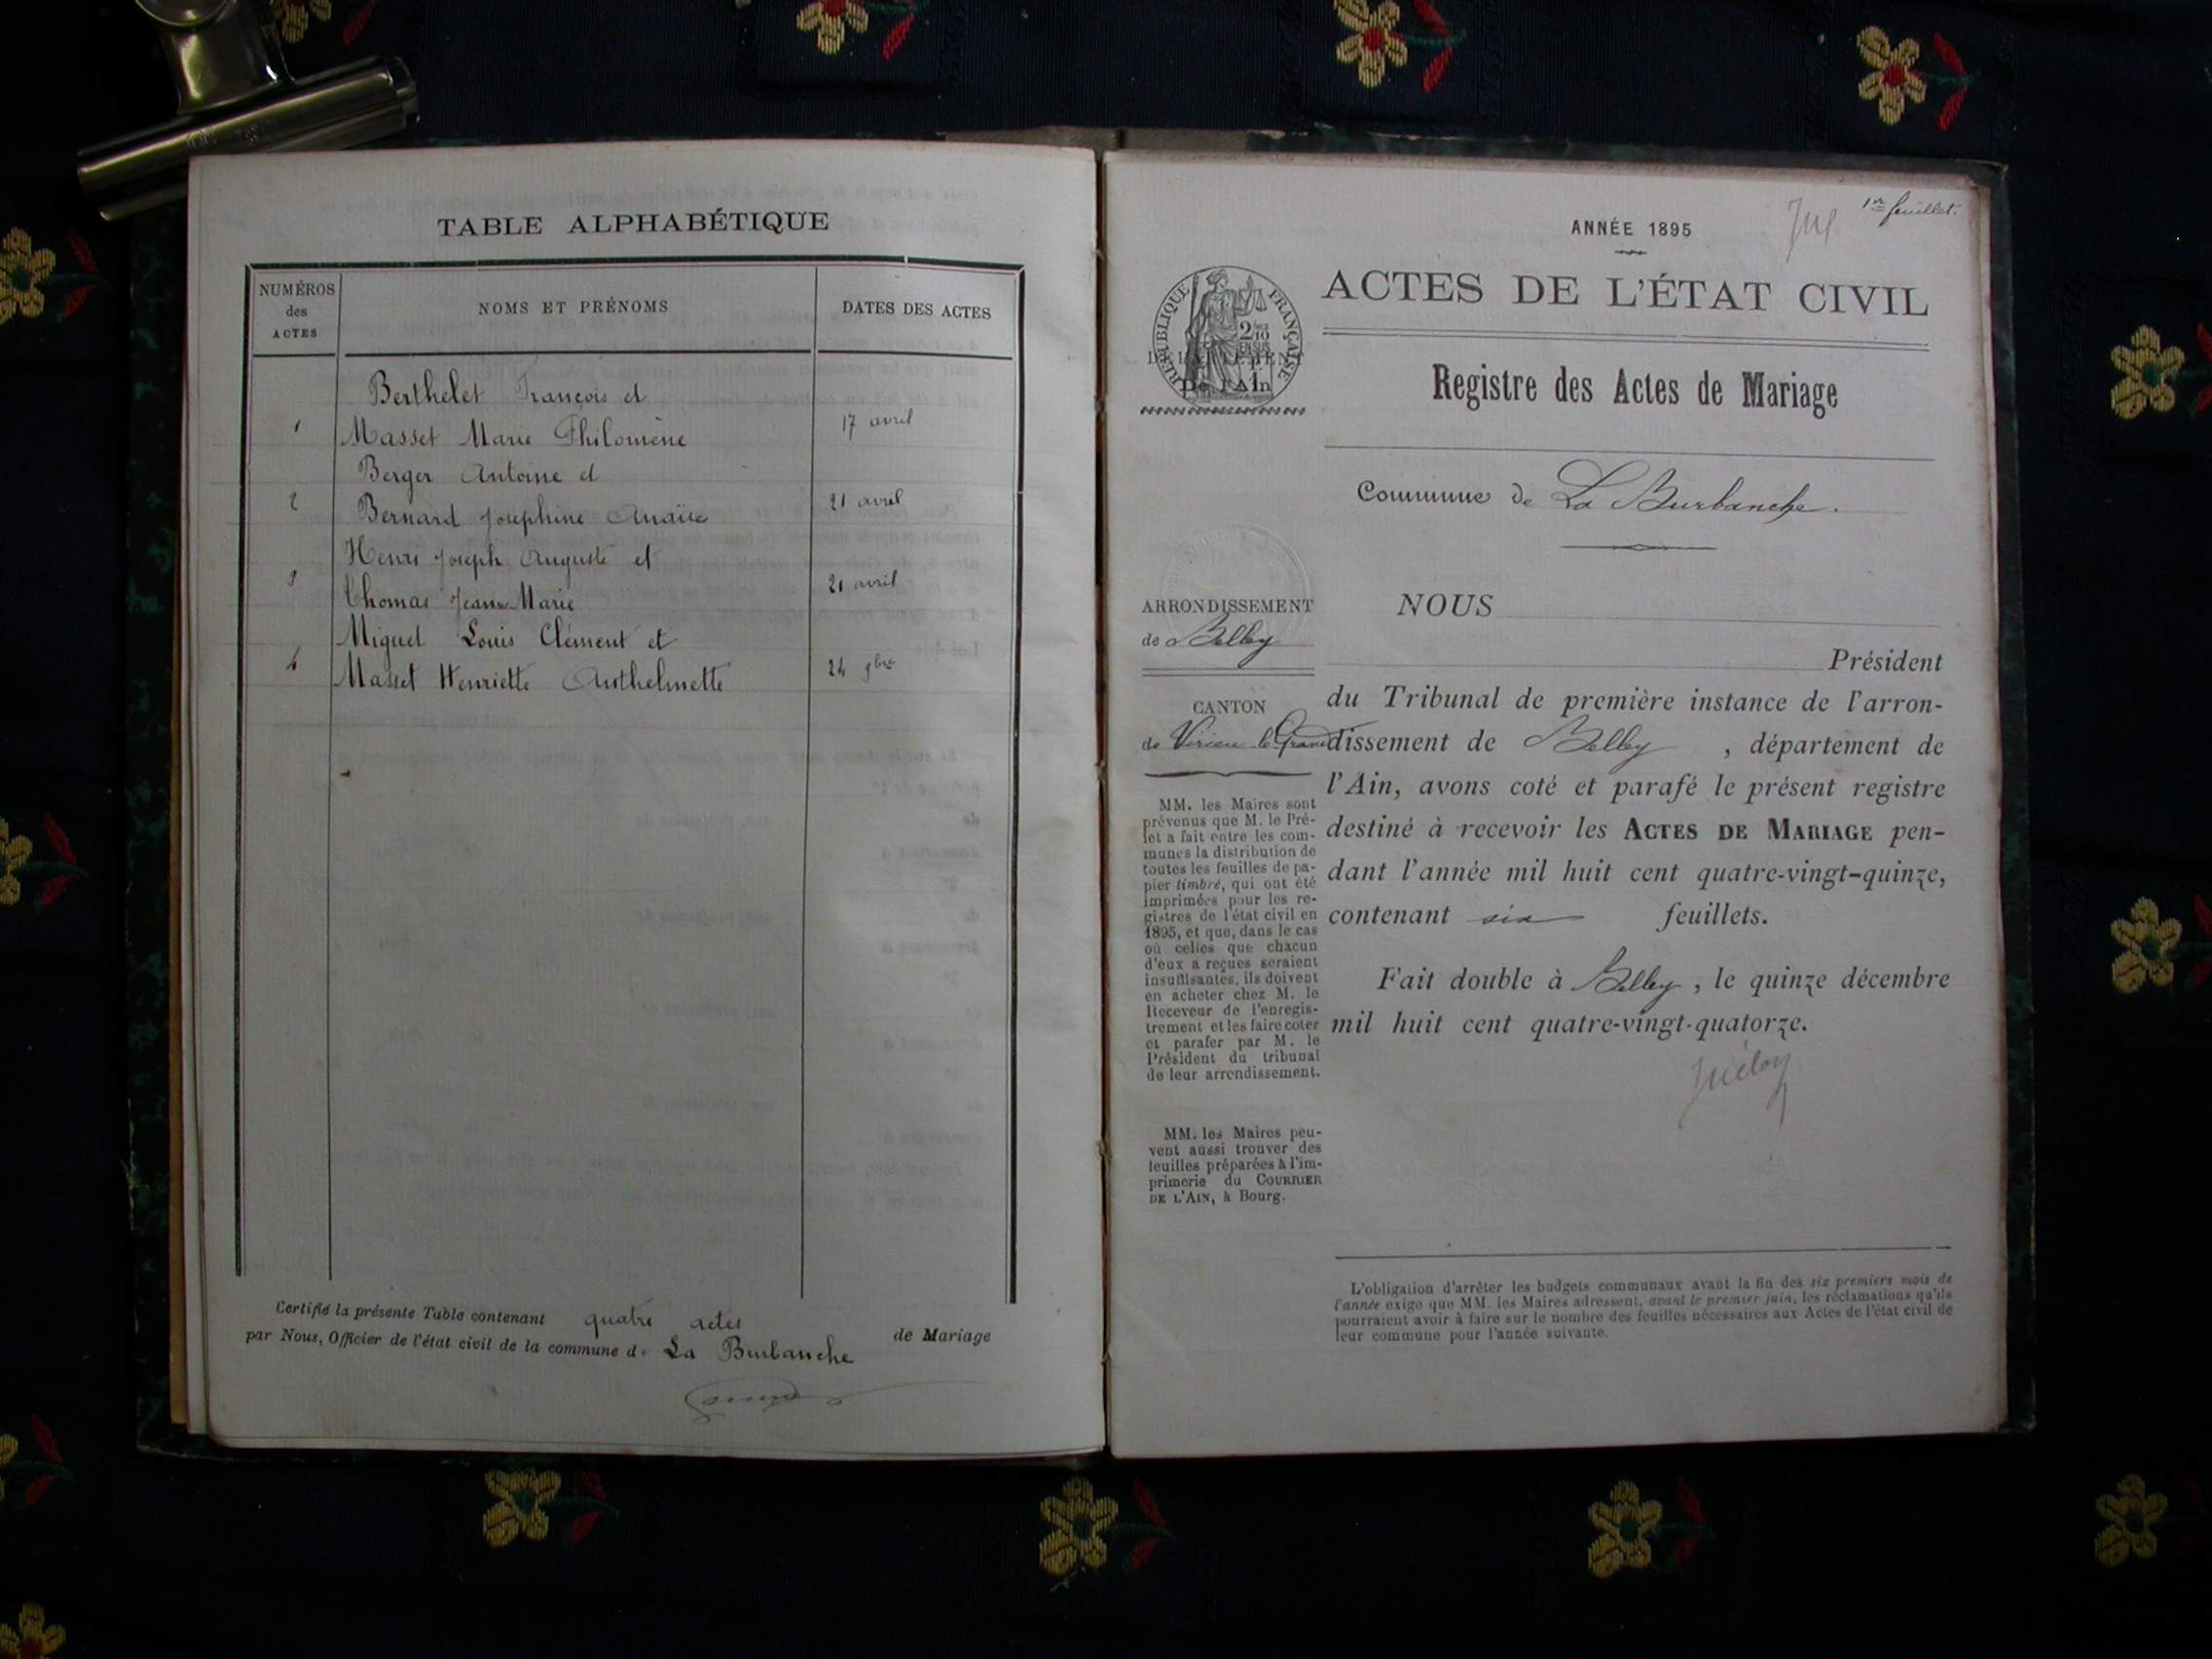 TABLE ALPHABÉTIQUE
NUMÉROS
des
ACTES
NOMS ET PRÉNOMS
DATES DES ACTES
Berthelet François et
1 Masset Marie Philomène 17 avril
Berger Antoine et
2 Bernard Josephine Anaïse 21 avril
Henri Joseph Auguste et
3 Thomas Jeanne Marie 21 avril
Miguel Louis Clément et
4 Masset Henriette Anthelmette 24 9bre
Certifié la présente Table contenant quatre actes de Mariage
par Nous, Officier de l'état civil de la commune de La Burbanche
1er feuillet.
ANNÉE 1895
ACTES DE L'ÉTAT CIVIL
RÉPUBLIQUE FRANÇAISE
DÉPARTEMENT
De l'Ain
Registre des Actes de Mariage
Commune de La Burbanche.
ARRONDISSEMENT
de Belley
CANTON
de Virieu le Grand
MM. les Maires sont
prévenus que M. le Pré-
fet a fait entre les com-
munes la distribution de
toutes les feuilles de pa-
pier timbré, qui ont été
imprimées pour les re-
gistres de l'état civil en
1895, et que, dans le cas
où celles que chacun
d'eux a reçues seraient
insuffisantes, ils doivent
en acheter chez M. le
Receveur de l'enregis-
trement et les faire coter
et parafer par M. le
Président du tribunal
de leur arrondissement.
MM. les Maires peu-
vent aussi trouver des
feuilles préparées à l'im-
primerie du COURRIER
DE L'AIN, à Bourg.
NOUS
Président
du Tribunal de première instance de l'arron-
dissement de Belley, département de
l'Ain, avons coté et parafé le présent registre
destiné à recevoir les ACTES DE MARIAGE pen-
dant l'année mil huit cent quatre-vingt-quinze,
contenant six feuillets.
Fait double à Belley, le quinze décembre
mil huit cent quatre-vingt-quatorze.
L'obligation d'arrêter les budgets communaux avant la fin des six premiers mois de
l'année exige que MM. les Maires adressent, avant le premier juin, les réclamations qu'ils
pourraient avoir à faire sur le nombre des feuilles nécessaires aux Actes de l'état civil de
leur commune pour l'année suivante.